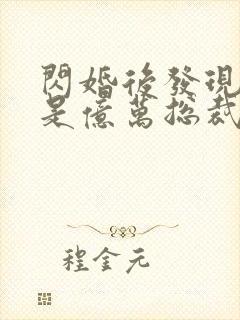 閃婚後發現
是億萬總裁
程金元